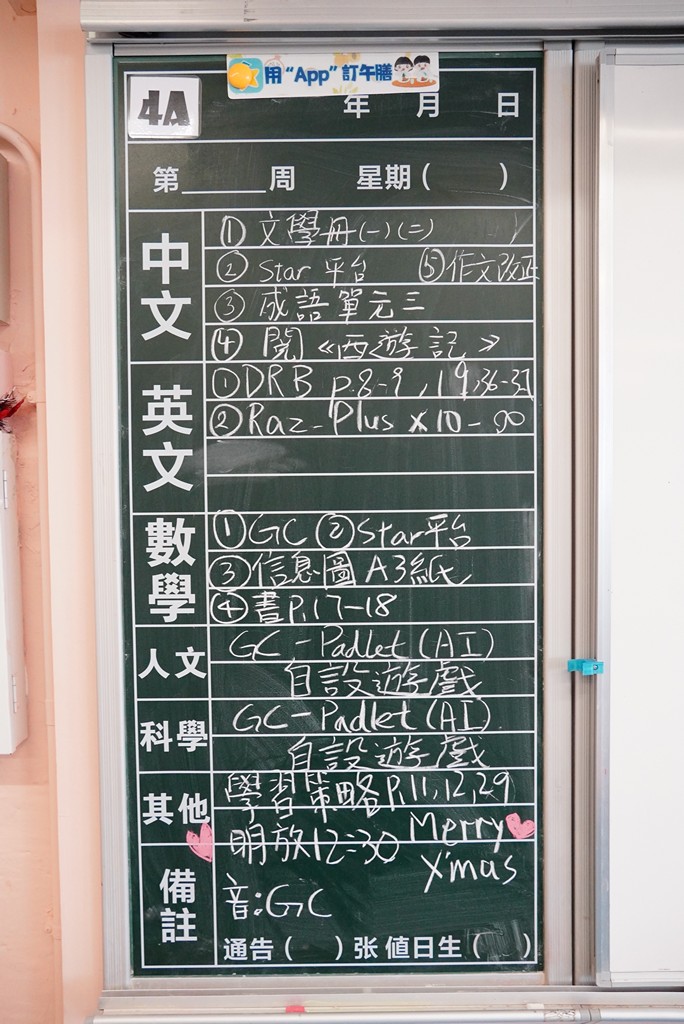 用“App”訂午膳
4A
年 月 日
第______周 星期( )
中文
① 文學冊(一)(二)
② Star 平台 ⑤作文改正
③ 成語單元三
④ 閱《西遊記》
英文
① DRB p.8-9, 19, 36-37
② Raz-Plus x 10-90
數學
① GC ② Star平台
③ 信息圖 A3紙
④ 書P.17-18
人文
GC-Padlet(AI)
自設遊戲
科學
GC-Padlet(AI)
自設遊戲
其他
學習策略P.11,12,29
明放12:30 Merry
X'mas
備註
音:GC
通告( )张 值日生( )